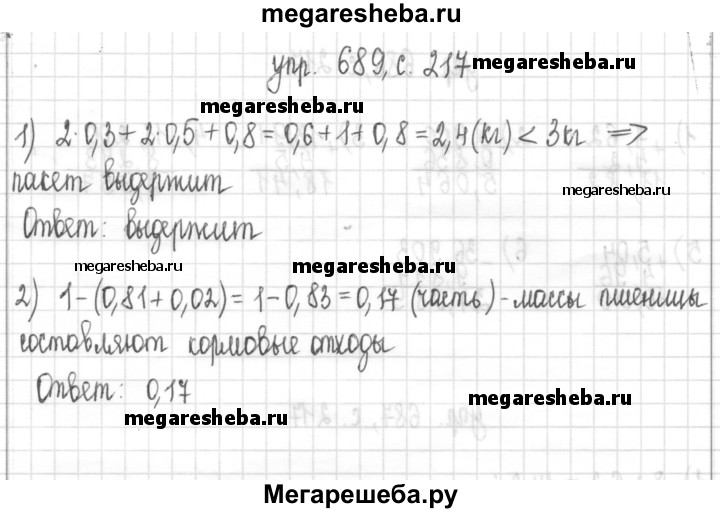 megaresheba.ru
упр. 689, с. 217 megaresheba.ru
megaresheba.ru
1) 2·0,3+2·0,5+0,8=0,6+1+0,8=2,4(кг)<3кг ⇒
пакет выдержит megaresheba.ru
Ответ: выдержит
megaresheba.ru megaresheba.ru
2) 1-(0,81+0,02)=1-0,83=0,17 (часть)-массы пшеницы
составляют кормовые отходы
Ответ: 0,17 megaresheba.ru
megaresheba.ru
Мегарешеба.ру